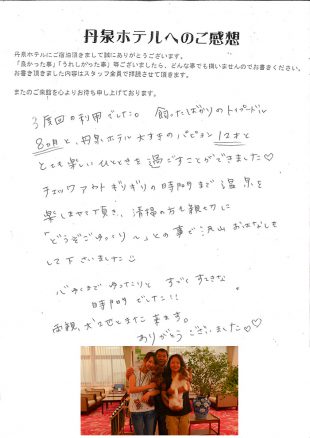 丹泉ホテルへのご感想
丹泉ホテルにご宿泊頂きまして誠にありがとうございます。
「良かった事」「うれしかった事」等ございましたら、どんな事でも構いませんのでお書きください。
お書き頂きました内容はスタッフ全員で拝読させて頂きます。
またのご来館を心よりお待ち申し上げております。
3度目の利用でした。飼ったばかりのトイプードル
8ヵ月と、丹泉ホテル大すきのパピヨン12才と
とても楽しいひとときを過ごすことができました♡
チェックアウトギリギリの時間まで温泉を
楽しませて頂き、清掃の方も親切に
「どうぞごゆっくり〜」との事で沢山お話なしを
して下さいました
心ゆくまでゆったりと すごくすてきな
時間でした!!
両親、犬2匹とまた来ます。
ありがとうございました♡♡